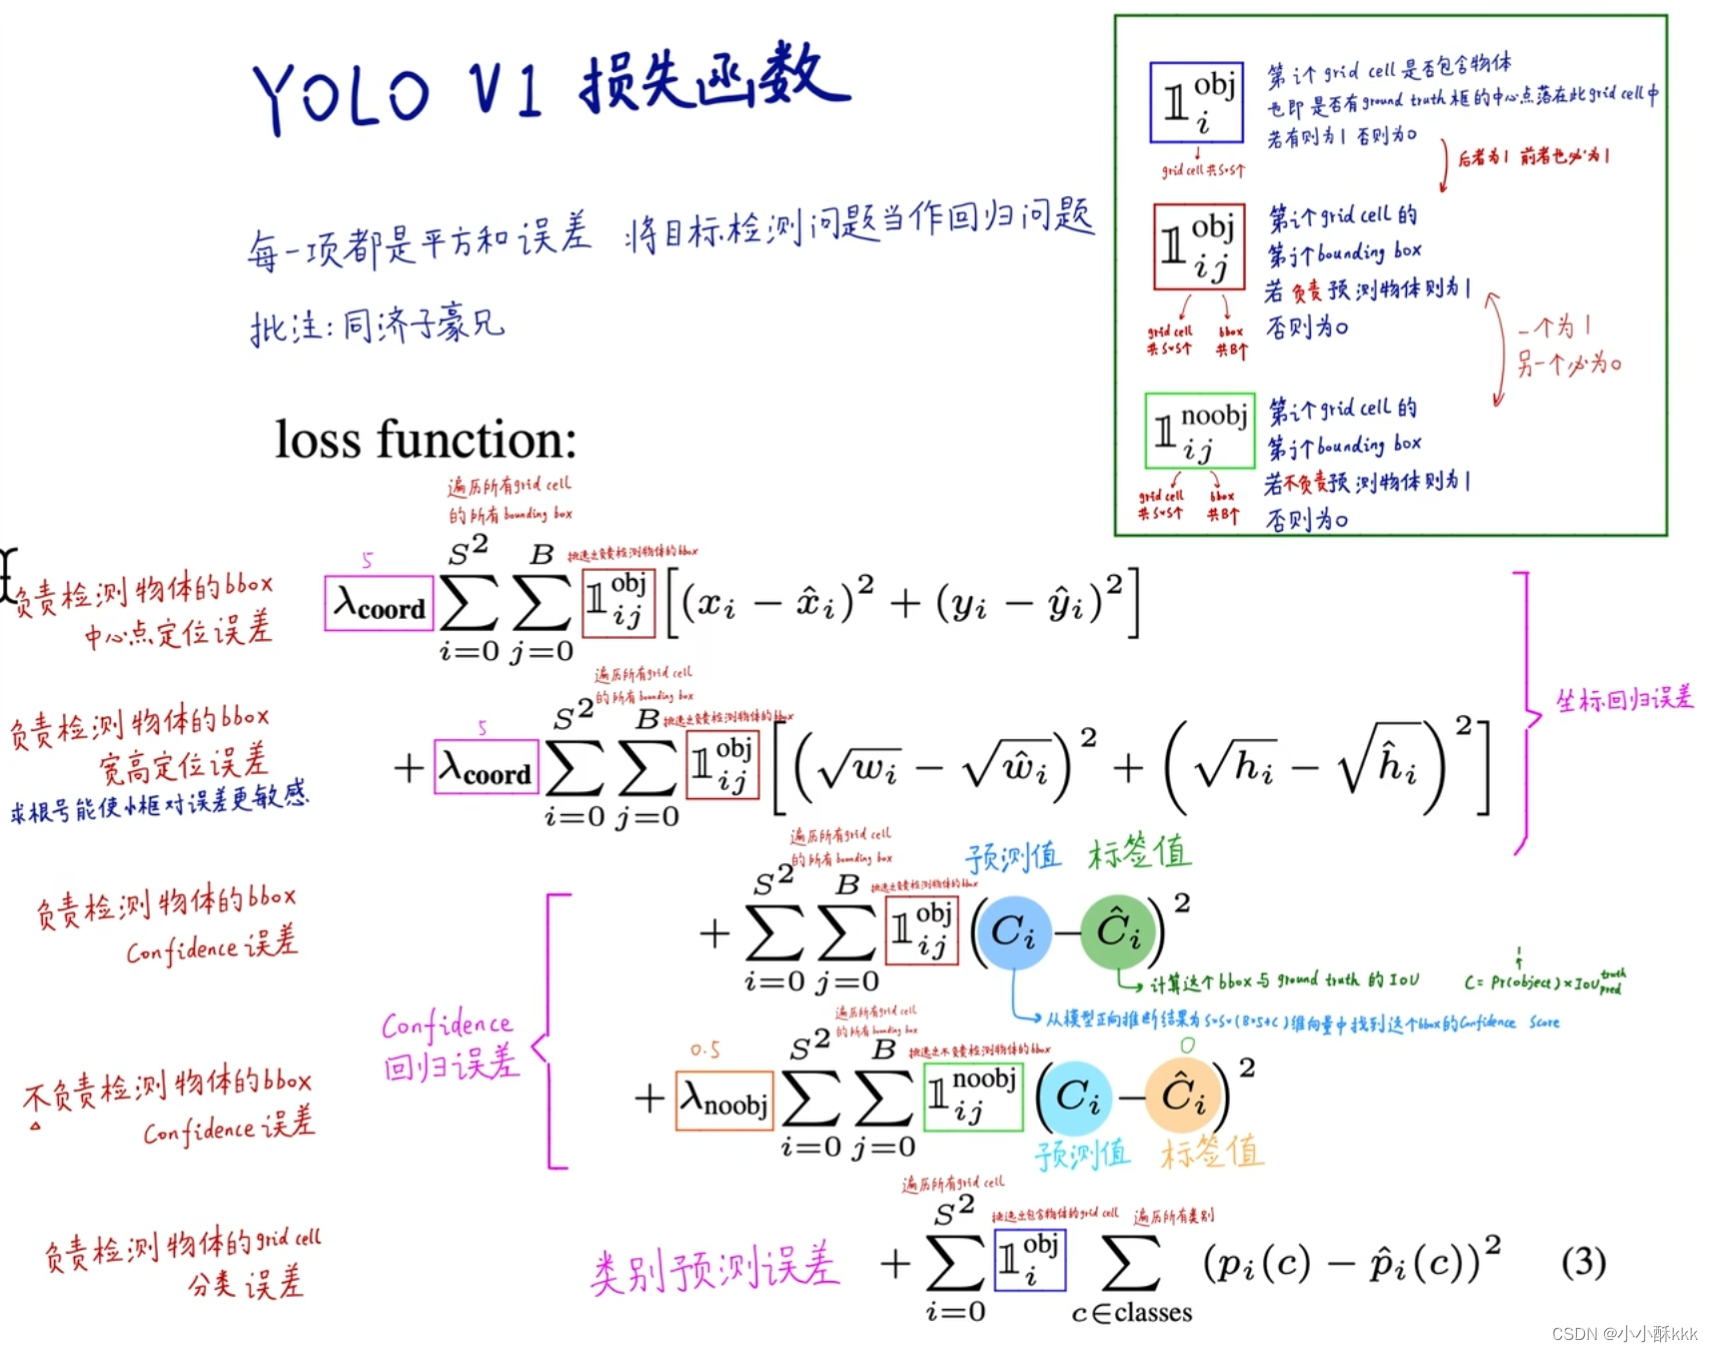 YOLO V1 损失函数
每一项都是平方和误差 将目标检测问题当作回归问题
批注:同济子豪兄
𝟙_i^obj
第i个grid cell是否包含物体
也即是否有ground truth框的中心点落在此grid cell中
若有则为1 否则为0
grid cell共S*S个
后者为1 前者也必为1
𝟙_ij^obj
第i个grid cell的
第j个bounding box
若负责预测物体则为1
否则为0
grid cell
共S*S个
bbox
共B个
一个为1
另一个必为0
𝟙_ij^noobj
第i个grid cell的
第j个bounding box
若不负责预测物体则为1
否则为0
grid cell
共S*S个
bbox
共B个
loss function:
遍历所有grid cell
的所有bounding box
挑选出负责检测物体的bbox
负责检测物体的bbox
中心点定位误差
5
λ_coord ∑_{i=0}^{S^2} ∑_{j=0}^{B} 𝟙_ij^obj [(x_i − x̂_i)^2 + (y_i − ŷ_i)^2]
坐标回归误差
遍历所有grid cell
的所有bounding box
挑选出负责检测物体的bbox
负责检测物体的bbox
宽高定位误差
求根号能使小框对误差更敏感
5
+ λ_coord ∑_{i=0}^{S^2} ∑_{j=0}^{B} 𝟙_ij^obj [(√w_i − √ŵ_i)^2 + (√h_i − √ĥ_i)^2]
遍历所有grid cell
的所有bounding box
挑选出负责检测物体的bbox
预测值 标签值
负责检测物体的bbox
Confidence误差
+ ∑_{i=0}^{S^2} ∑_{j=0}^{B} 𝟙_ij^obj (C_i − Ĉ_i)^2
计算这个bbox与ground truth的IoU
1
C = Pr(object) × IoU_pred^truth
从模型正向推断结果为S*S*(B*5+C)维向量中找到这个bbox的Confidence Score
Confidence
回归误差
遍历所有grid cell
的所有bounding box
挑选出不负责检测物体的bbox
不负责检测物体的bbox
Confidence误差
0.5
0
+ λ_noobj ∑_{i=0}^{S^2} ∑_{j=0}^{B} 𝟙_ij^noobj (C_i − Ĉ_i)^2
预测值 标签值
遍历所有grid cell
挑选出包含物体的grid cell
遍历所有类别
负责检测物体的grid cell
分类误差
类别预测误差
+ ∑_{i=0}^{S^2} 𝟙_i^obj ∑_{c∈classes} (p_i(c) − p̂_i(c))^2 (3)
CSDN @小小酥kkk